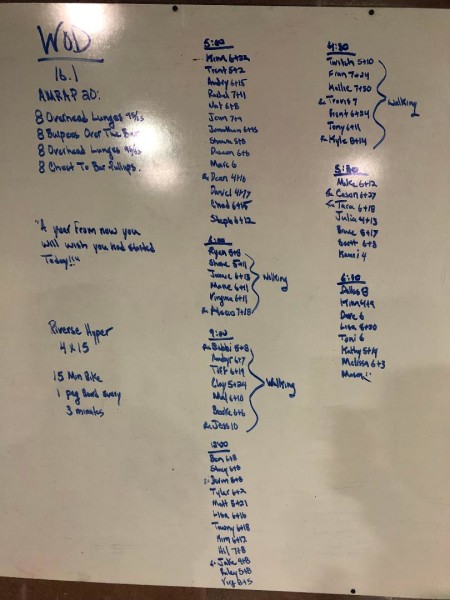 WOD
16.1
AMRAP 20:
8 Overhead Lunges 95/65
8 Burpees Over The Bar
8 Overhead Lunges
8 Chest To Bar Pullups.
"A year from now you
will wish you had started
Today!!"
Riverse Hyper
4 x 15
15 Min Bike
1 peg Board every
3 minutes
5:00
Trent 5+2
Audry 6+15
Rachel 7+11
Nat 6+8
Jonathan 6+15
Shawn 5+8
Deacon 6+6
Marc 6
Rx Dean 4+16
Daniel 4+17
Chad 6+15
Steph 6+12
6:00
Ryan 8+8
Shane 5+11
Jamie 6+13
Marie 6+11
Virginia 6+11
Rx Marcus 7+18
Walking
9:00
Rx Bobbi 5+8
Tift 6+19
Clay 5+24
Mel 6+10
Rx Jess 10
Walking
12:00
Ben 6+8
Stacy 6+8
Tyler 6+2
Matt 5+21
Lisa 6+16
Tawny 6+18
Kim 6+12
Hil 7+8
Rx Jake 9+8
Haley 5+8
4:30
Twitch 5+10
Fran 7+24
Kellie 7+30
Rx Travis 7
Brent 6+24
Tony 6+11
Rx Kyle 8+14
Walking
5:30
Make 6+12
Rx Casen 6+27
Rx Tara 6+18
Julia 4+13
Bruce 5+17
Scott 6+8
Kami 4
6:30
Dallas 8
Dave 6
Lisa 5+30
Toni 6
Kathy 5+14
Melissa 6+3
Mason!!